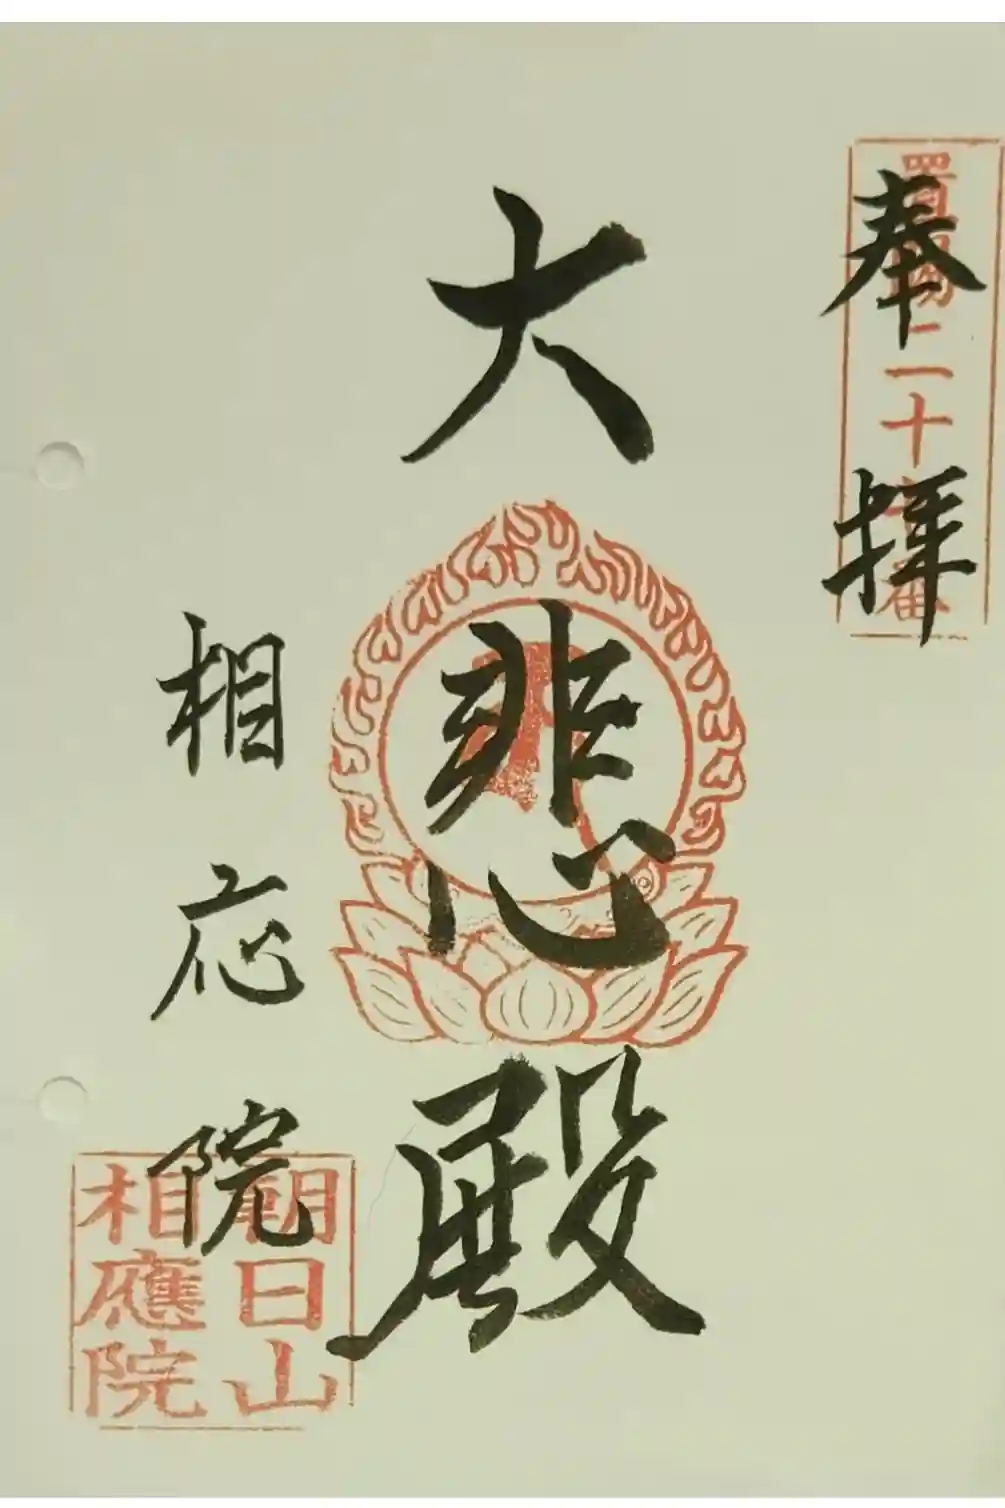 奉拝
置賜二十番
大悲殿
相応院
朝日山
相應院